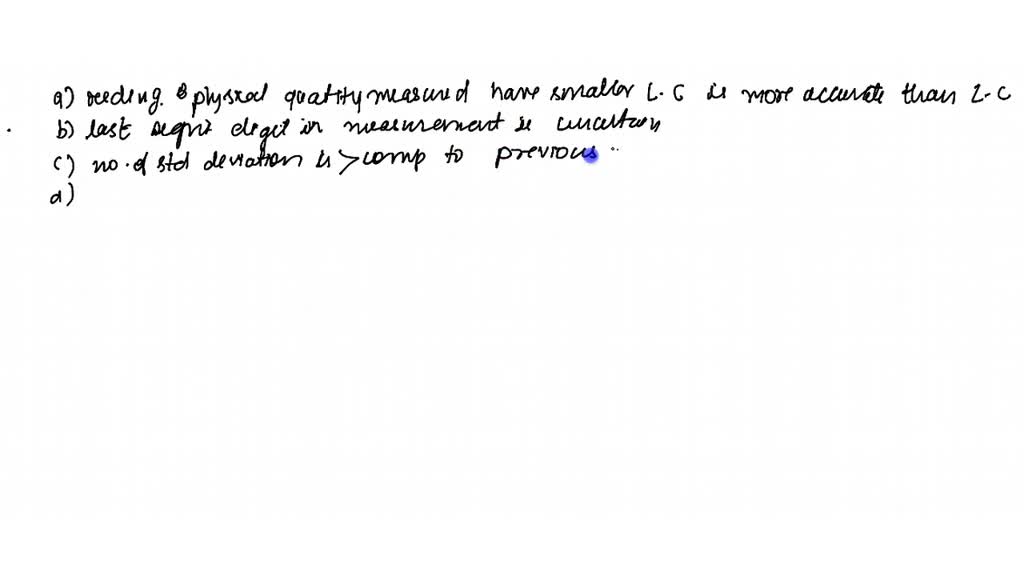 a) reeding. & physical quatity measured have smaller L.C is more accurate than L.C
b) last signi digit in measurement is uncertain
c) no. of std deviation is > comp to previous ..
d)